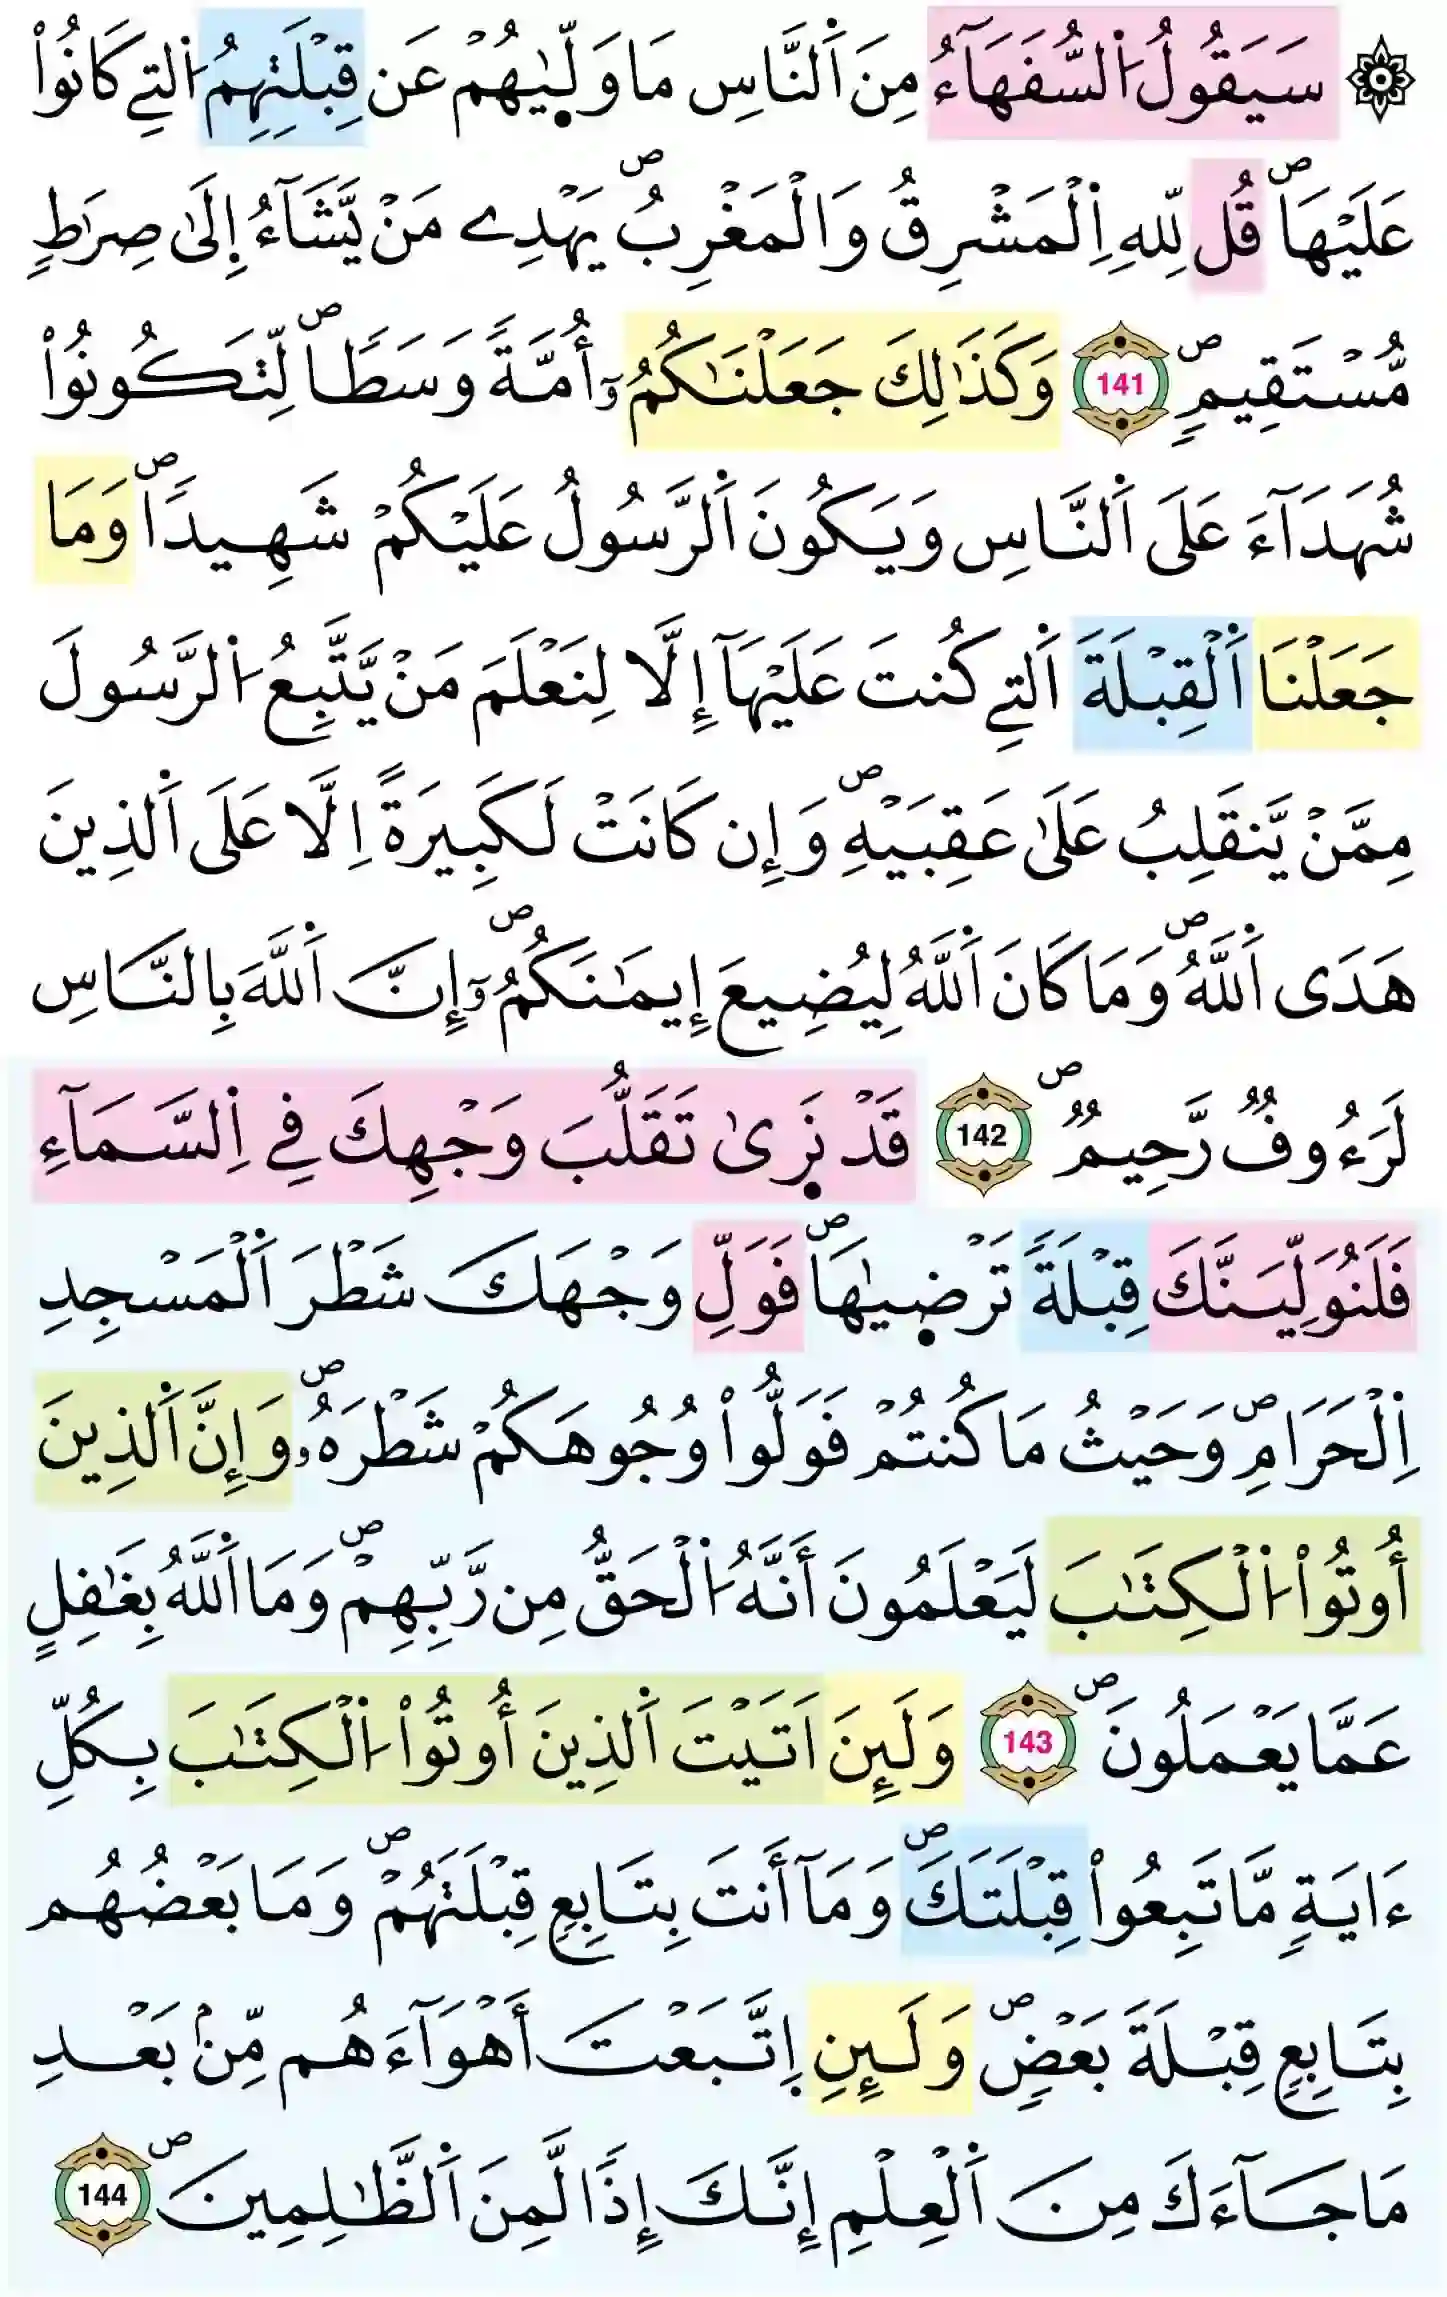 ۞ سَيَقُولُ اُ۬لسُّفَهَآءُ مِنَ اَ۬لنَّاسِ مَا وَلّ۪يٰهُمْ عَن قِبْلَتِهِمُ اُ۬لتِے كَانُواْ
عَلَيْهَاۖ قُل لِّلهِ اِ۬لْمَشْرِقُ وَالْمَغْرِبُۖ يَهْدِے مَنْ يَّشَآءُ إِلَىٰ صِرَٰطٍ
مُّسْتَقِيمٍۖ 141 وَكَذَٰلِكَ جَعَلْنَٰكُمُۥٓ أُمَّةً وَسَطًاۖ لِّتَكُونُواْ
شُهَدَآءَ عَلَى اَ۬لنَّاسِ وَيَكُونَ اَ۬لرَّسُولُ عَلَيْكُمْ شَهِيدًاۖ وَمَا
جَعَلْنَا اَ۬لْقِبْلَةَ اَ۬لتِے كُنتَ عَلَيْهَآ إِلَّا لِنَعْلَمَ مَنْ يَّتَّبِعُ اُ۬لرَّسُولَ
مِمَّنْ يَّنقَلِبُ عَلَىٰ عَقِبَيْهِۖ وَإِن كَانَتْ لَكَبِيرَةً اِلَّا عَلَى اَ۬لذِينَ
هَدَى اَ۬للَّهُۖ وَمَا كَانَ اَ۬للَّهُ لِيُضِيعَ إِيمَٰنَكُمُۥٓۖ إِنَّ اَ۬للَّهَ بِالنَّاسِ
لَرَءُوفٌ رَّحِيمٌۖ 142 قَدْ نَر۪ىٰ تَقَلُّبَ وَجْهِكَ فِے اِ۬لسَّمَآءِ
فَلَنُوَلِّيَنَّكَ قِبْلَةً تَرْض۪يٰهَاۖ فَوَلِّ وَجْهَكَ شَطْرَ اَ۬لْمَسْجِدِ
اِ۬لْحَرَامِۖ وَحَيْثُ مَا كُنتُمْ فَوَلُّواْ وُجُوهَكُمْ شَطْرَهُۥۖ وَإِنَّ اَ۬لذِينَ
أُوتُواْ اُ۬لْكِتَٰبَ لَيَعْلَمُونَ أَنَّهُ اُ۬لْحَقُّ مِن رَّبِّهِمْۖ وَمَا اَ۬للَّهُ بِغَٰفِلٍ
عَمَّا يَعْمَلُونَۖ 143 وَلَئِنَ اَتَيْتَ اَ۬لذِينَ أُوتُواْ اُ۬لْكِتَٰبَ بِكُلِّ
ءَايَةٍ مَّا تَبِعُواْ قِبْلَتَكَۖ وَمَآ أَنتَ بِتَابِعٍ قِبْلَتَهُمْۖ وَمَا بَعْضُهُم
بِتَابِعٍ قِبْلَةَ بَعْضٍۖ وَلَئِنِ اِ۪تَّبَعْتَ أَهْوَآءَهُم مِّنۢ بَعْدِ
مَا جَآءَكَ مِنَ اَ۬لْعِلْمِ إِنَّكَ إِذًا لَّمِنَ اَ۬لظَّٰلِمِينَۖ 144